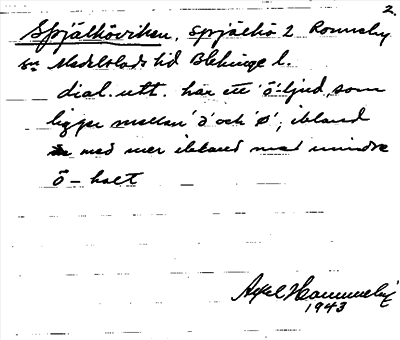 2.
Spjälköviken, spjälkö 2 Ronneby
sn Medelstads hd Blekinge l.
dial. utt. har ett 'ö'-ljud, som
ligger mellan 'å' och 'ø'; ibland
med mer ibland med mindre
ö-halt
Axel
1943